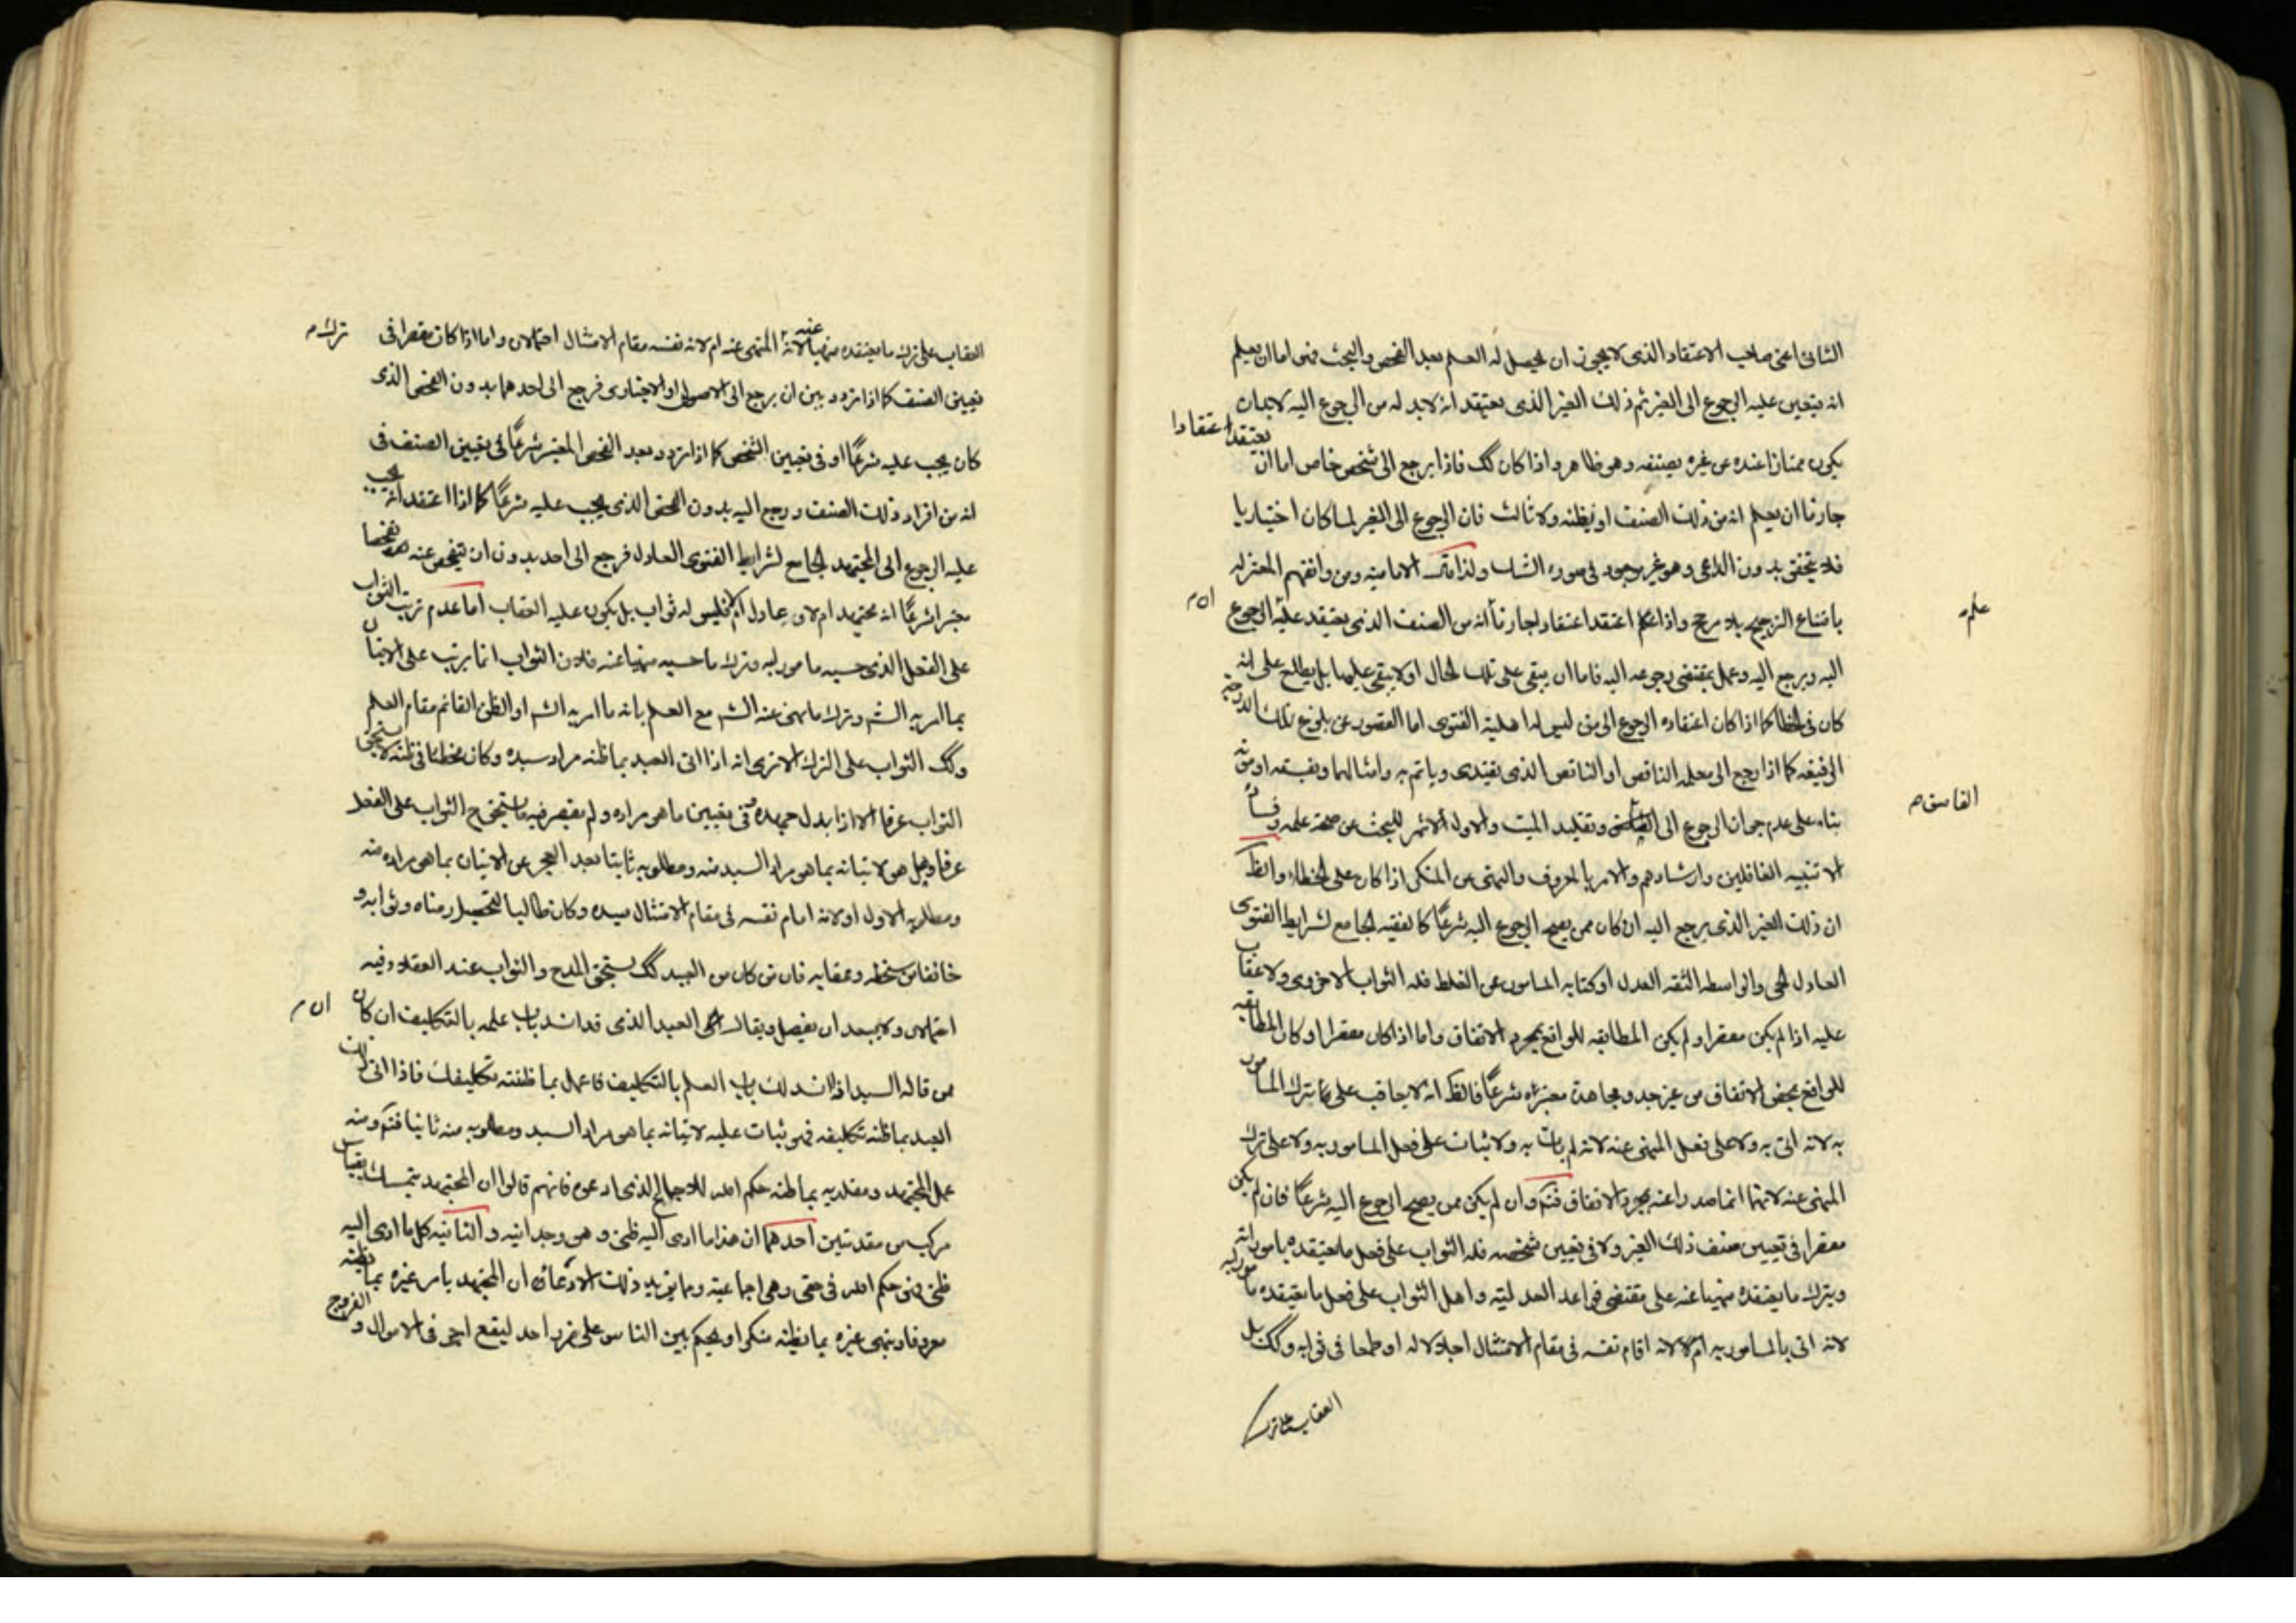 الثانى اعنى صاحب الاعتقاد الذى لا يجوز ان يحصل له العلم بعد الفحص والبحث فهو اما ان يعلم
انه يتعين عليه الرجوع الى الغير ثم ذلك الغير الذى يعتقد انه لا بد له من الرجوع اليه لا بد ان
يكون ممتازا عنده عن غيره بصنفه وهو ظاهر واذا كان كك فاذا يرجع الى شخص خاص اما ان يعتقد اعتقادا
جازما ان يعلم انه من ذلك الصنف او يظنه ولا ثالث فان الرجوع الى الغير لما كان اختياريا
فلا يتحقق بدون الداعى وهو غير موجود فى صورة الشك ولذا الامامية ومن وافقهم المعتزله
بامتناع الترجيح بلا مرجح واذا اعتقد اعتقادا جازما انه من الصنف الذى يعتقد عليه الرجوع
ان م
علم م
اليه ويرجع اليه وعمل بمقتضى رجوعه اليه فاما ان يبقى على تلك الحال او لا يبقى عليها بل يطلع على انه
كان فى الخطا كما اذا كان اعتقاده الرجوع الى من ليس له اهلية الفتوى اما القصور عن بلوغ تلك الدرجة
الرفيعه كما اذا رجع الى معلمه الناقص او الناقص الذى يقتدى وياتم به وامثالهما وفسقه او موته
بناء على عدم جواز الرجوع الى وتقليد الميت والاول للبحث عن صحة علمه وفساده
الفاسق م
الا تنبيه الغافلين وارشادهم والامر بالمعروف والنهى عن المنكر اذا كان على الخطاء والظ
ان ذلك الغير الذى يرجع اليه ان كان ممن يصح الرجوع اليه شرعا كالفقيه الجامع لشرايط الفتوى
العادل الحى والواسطه الثقه العدل او كتابه المامون عن الغلط فله الثواب الاخروى ولا عقاب
عليه اذا لم يكن مقصرا ولم يكن المطابقه للواقع بمجرد الاتفاق واما اذا كان مقصرا او كان المطابقه
للواقع بمحض الاتفاق من غير جد ومجاهدة معتبره شرعا فالظ انه لا يعاقب على ترك المامور
به لانه اتى به ولا على فعل المنهى عنه لانه لم يات به ولا يثاب على فعل المامور به ولا على ترك
المنهى عنه لانهما انما صدرا عنه بمجرد الاتفاق فتم وان لم يكن ممن يصح الرجوع اليه شرعا فان لم يكن
مقصرا فى تعيين صنف ذلك الغير ولا فى تعيين شخصه فله الثواب على فعل ما يعتقده مامورا به
ويترك ما يعتقده منهيا عنه على مقتضى قواعد العدلية واهل الثواب على فعل ما يعتقده مامور به
لانه اتى بالمامور به ام لا لانه اقام نفسه فى مقام الامتثال اجلالا له او طمعا فى ثوابه وكك بل
العقاب على ترك
العقاب على ترك ما يعتقده منهيا عنه لانه المنهى عنه ام لانه نفسه مقام الامتثال احتمالان واما اذا كان مقصرا فى
ترك م
تعيين الصنف كما اذا تردد بين ان يرجع الى الاصولى او الاخبارى فرجع الى احدهما بدون الفحص الذى
كان يجب عليه شرعا او فى تعيين الشخص كما اذا تردد بعد الفحص المعتبر شرعا فى تعيين الصنف فى
انه من افراد ذلك الصنف ورجع اليه بدون الفحص الذى يجب عليه شرعا كما اذا اعتقد انه يجب
عليه الرجوع الى المجتهد الجامع لشرايط الفتوى العادل فرجع الى احد بدون ان يتفحص عنه تفحصا
معتبرا شرعا انه مجتهد ام لا او عادل ام لا فليس له ثواب بل يكون عليه العقاب اما عدم ترتب الثواب
على الفعل الذى حسبه مامور به وترك ما حسبه منهيا عنه فلان الثواب انما يرتب على الاتيان
بما امر به الش وترك ما نهى عنه الش مع العلم بانه ما امر به الش او الظن القائم مقام العلم
وكك الثواب على الترك الا ترى انه اذا اتى العبد بما ظنه مراد سيده وكان مخطئا فى ظنه لا يستحق
الثواب عرفا الا اذا بذل جهده فى تعيين ما هو مراده ولم يقصر فيه فيستحق ح الثواب على الفعل
عرفا وهل هو لاتيانه بما هو مراد السيد منه ومطلوبه ثانيا بعد العجز عن الاتيان بما هو مراده منه
ومطلوبه الاول او لانه اقام نفسه فى مقام الامتثال سيده وكان طالبا لتحصيل رضاه وثوابه و
خائفا من سخطه وعقابه فان من كان من العبيد كك يستحق المدح والثواب عند العقلاء وفيه
احتمالان ولا يبعد ان يفصل ويقال العبد الذى قد انسد باب علمه بالتكليف ان كان
ان م
ممن قال له السيد اذا انسد لك باب العلم بالتكليف فاعمل بما ظننته تكليفك فاذا اتى ذلك
العبد بما ظنه تكليفه فهو يثاب عليه لاتيانه بما هو مراد السيد ومطلوبه منه ثانيا فتم ومنه
عمل المجتهد ومقلديه بما ظنه حكم الله للاجماع الذى ادعوه فانهم قالوا ان المجتهد يتمسك بقياس
مركب من مقدمتين احدهما ان هذا ما ادى اليه ظنى وهى وجدانيه والثانيه كل ما ادى اليه
ظنى فهو حكم الله فى حقى وهى اجماعية ومما يؤيد ذلك ان المجتهد يامر غيره بما يظنه
معروفا وينهى غيره بما يظنه منكرا ويحكم بين الناس على فى الاموال والفروج